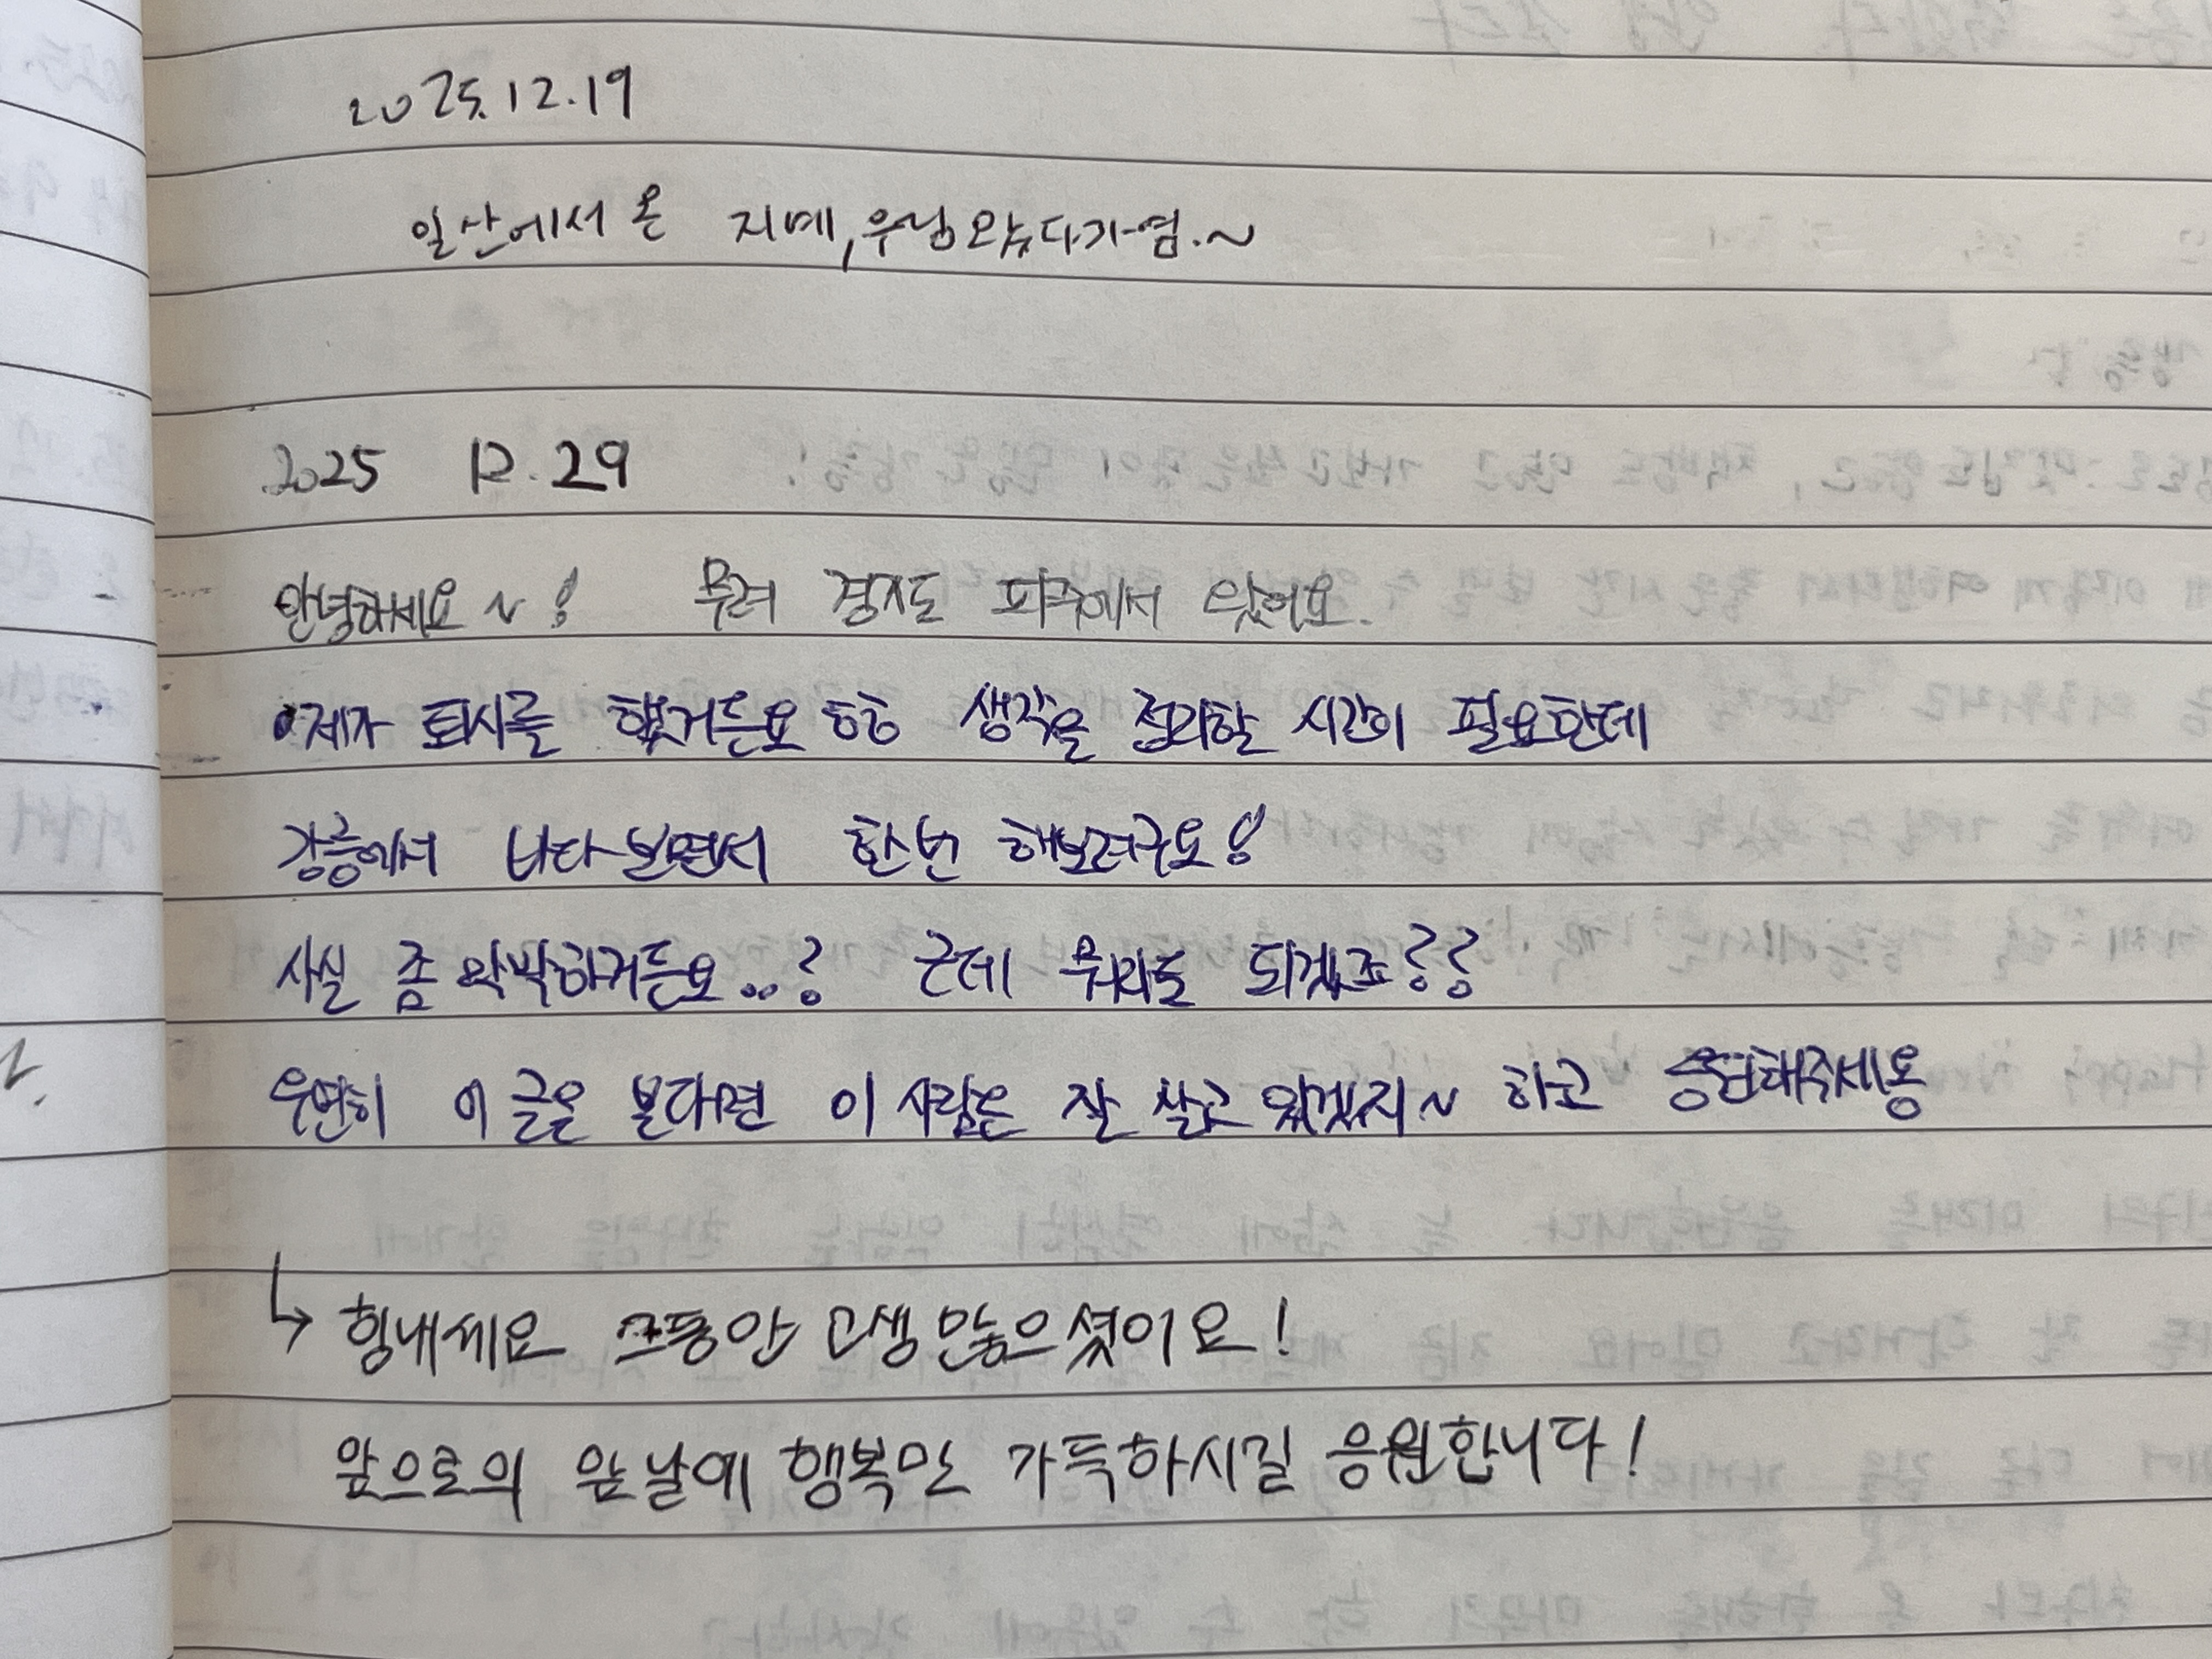 2025.12.19
일산에서 온 지예, 우넝 왔다가염.~
2025 12.29
안녕하세요~! 무려 경기도 파주에서 왔어요.
제가 퇴사를 했거든요 흠흠 생각을 정리할 시간이 필요한데
강릉에서 바다보면서 한번 해보려구요!
사실 좀 막막하거든요..? 근데 뭐라도 되겠죠??
우연히 이 글을 본다면 이 사람은 잘 살고 있겠지~ 하고 응원해주세용
↳ 힘내세요 그동안 고생 많으셨어요!
앞으로의 앞날에 행복만 가득하시길 응원합니다!